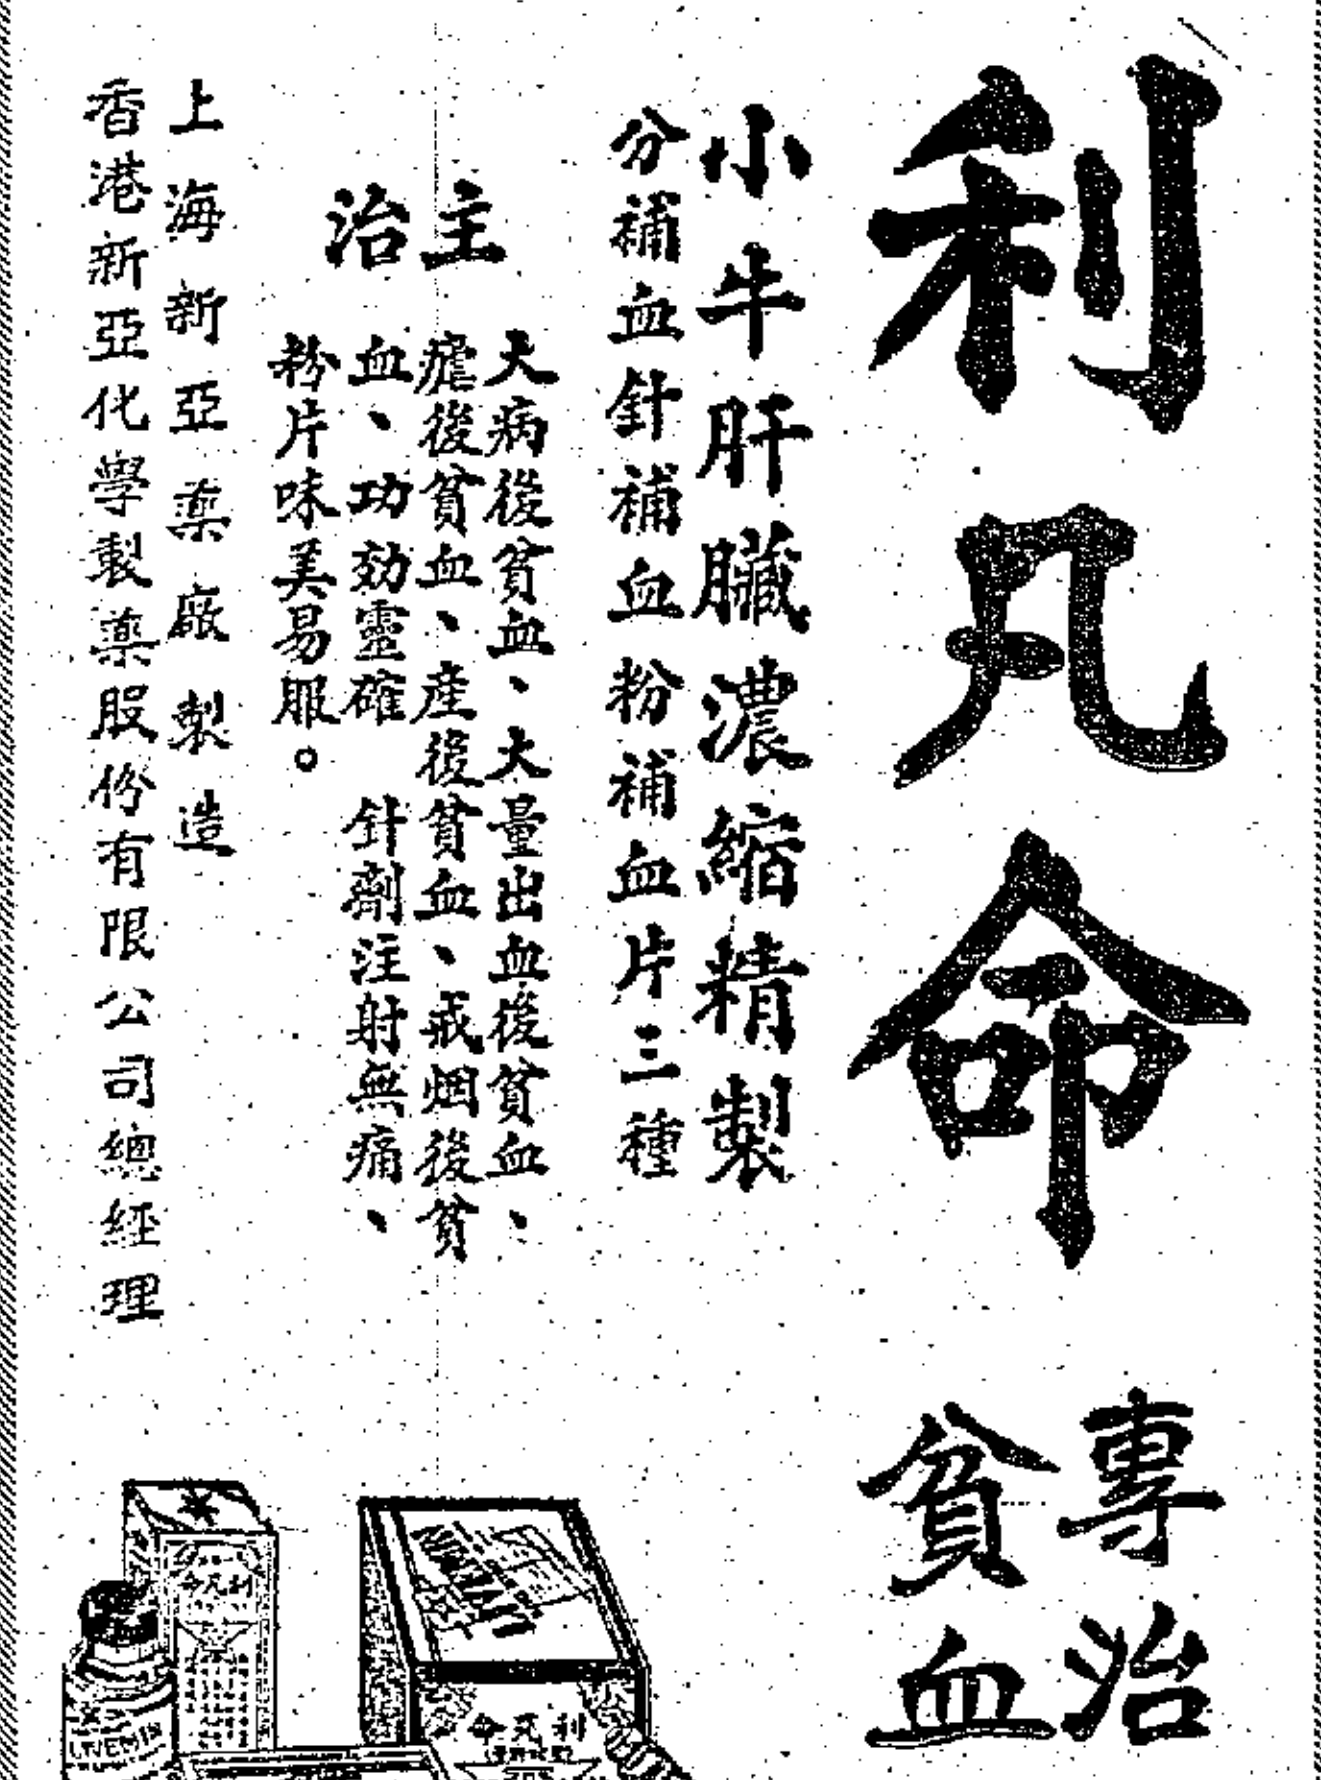 利凡命
專治
貧血
小牛肝臟濃縮精製
分補血針補血粉補血片三種
主治
大病後貧血、大量出血後貧血、
瘧後貧血、産後貧血、戒烟後貧
血、功効靈確 針劑注射無痛、
粉片味美易服。
上海新亞藥廠製造
香港新亞化學製藥股份有限公司總經理
利凡命
利凡命
LIVEMIN